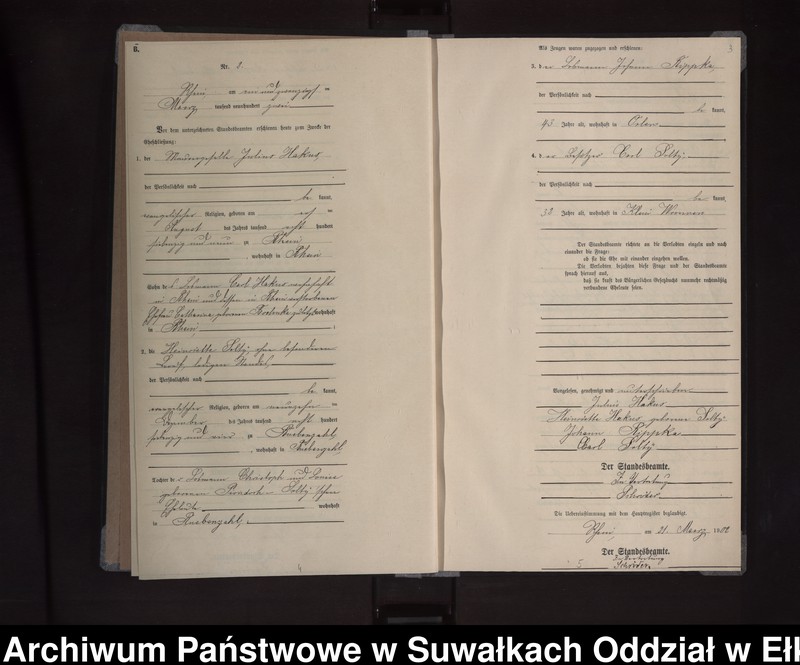 B.
Nr. 2.
Rhein am neunundzwanzigsten
Maerz tausend neunhundert zwei
Vor dem unterzeichneten Standesbeamten erschienen heute zum Zwecke der
Eheschließung:
1. der Maurergeselle Julius Hakus,
der Persönlichkeit nach
be kannt,
evangelischer Religion, geboren am
August des Jahres tausend acht hundert
siebenzig und neun zu Rhein
, wohnhaft in Rhein
Sohn des Losmann Carl Hakus wohnhaft
in Rhein und dessen in Rhein verstorbenen
Ehefrau Catharine, geborenen wohnhaft
in Rhein,
2. die Heinriette Selby, ohne besonderen
Beruf, ledigen Standes,
der Persönlichkeit nach
be kannt,
evangelischer Religion, geboren am neunzehn
Dezember des Jahres tausend acht hundert
siebenzig und zu Ruebenzahl
, wohnhaft in Ruebenzahl
Tochter der Losmann Christoph und
geborenen Selby'schen
Eheleute wohnhaft
in Ruebenzahl.
4
3
Als Zeugen waren zugezogen und erschienen:
3. der Losmann Johann Kippka,
der Persönlichkeit nach
be kannt,
43 Jahre alt, wohnhaft in
4. der Besitzer Carl Selby
der Persönlichkeit nach
be kannt,
Jahre alt, wohnhaft in Klein
Der Standesbeamte richtete an die Verlobten einzeln und nach
einander die Frage:
ob sie die Ehe mit einander eingehen wollen.
Die Verlobten bejahten diese Frage und der Standesbeamte
sprach hierauf aus,
daß sie kraft des Bürgerlichen Gesetzbuchs nunmehr rechtmäßig
verbundene Eheleute seien.
Vorgelesen, genehmigt und unterschrieben
Julius Hakus
Heinriette Hakus geborene Selby
Johann Kippka
Carl Selby
Der Standesbeamte.
In Vertretung
Schröter
Die Uebereinstimmung mit dem Hauptregister beglaubigt.
Rhein, am 21. Maerz 1902
Der Standesbeamte.
In Vertretung
Schröter.
5
Archiwum Państwowe w Suwałkach Oddział w Ełk